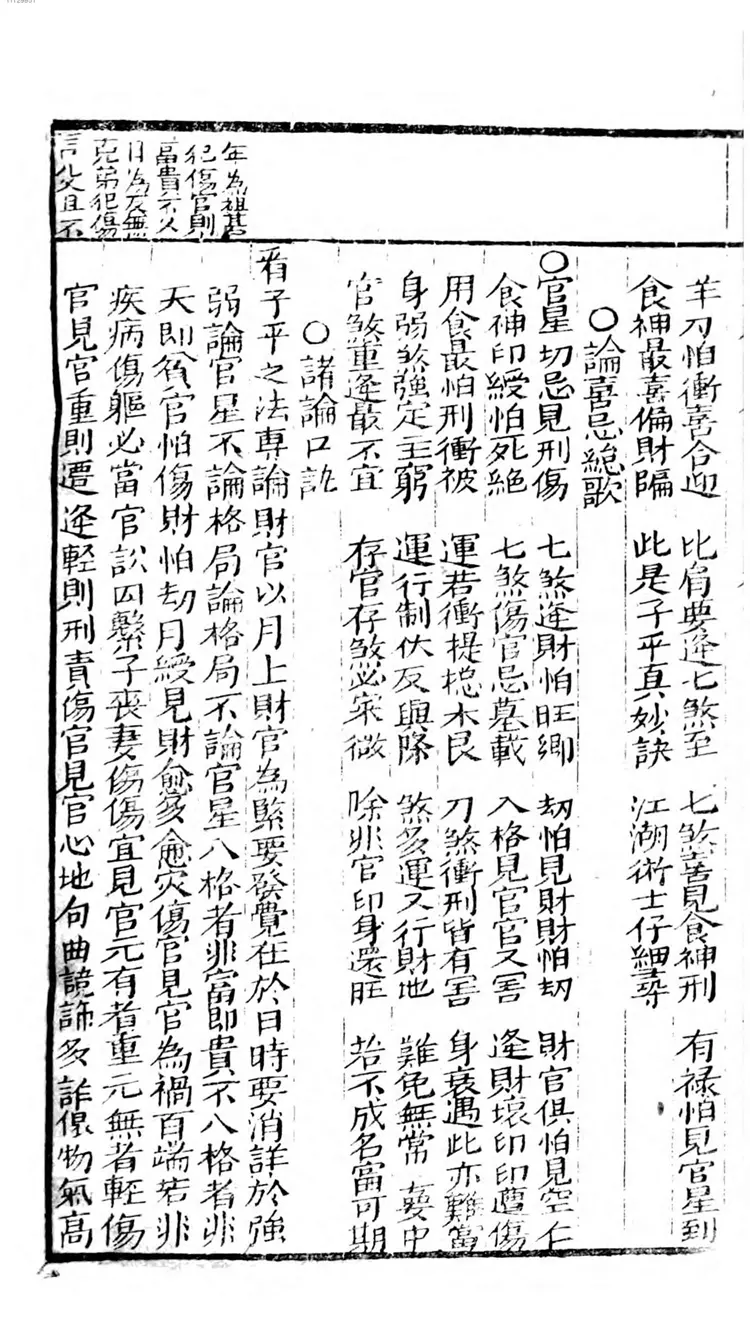 羊刃怕衝喜合迎　比肩要逢七煞至　七煞喜見食神刑　有禄怕見官星到
食神最喜偏財臨　此是子平真妙訣　江湖術士仔細尋
〇論喜忌總歌
〇官星切忌見刑傷　七煞逢財怕旺鄉　劫怕見財財怕劫　財官俱怕見空亡
食神印綬怕死絕　七煞傷官忌墓載　入格見官官又害　逢財壞印印遭傷
用食最怕刑衝被　運若衝提摠木艮　刀煞衝刑皆有害　身衰遇此亦難當
身弱煞強定主窮　運行制伏反興隆　煞多運又行財地　難免無常
官煞重逢最不宜　存官存煞必宋微　除非官印身還旺　若不成名富可期
〇諸論口訣
看子平之法專論財官以月上財官為緊要發覺在於日時要消詳於強
弱論官星不論格局論格局不論官星入格者非富即貴不入格者非
夭即貧官怕傷財怕劫月綬見財愈多愈災傷官見官為禍百端若非
疾病傷軀必當官訟囚繫子喪妻傷傷宜見官元有者重元無者輕傷
官見官重則遷逢輕則刑責傷官見官心地句曲詭譎多詐傲物氣高
年為祖基
犯傷官則
富貴不久
月為反無
克弟犯傷